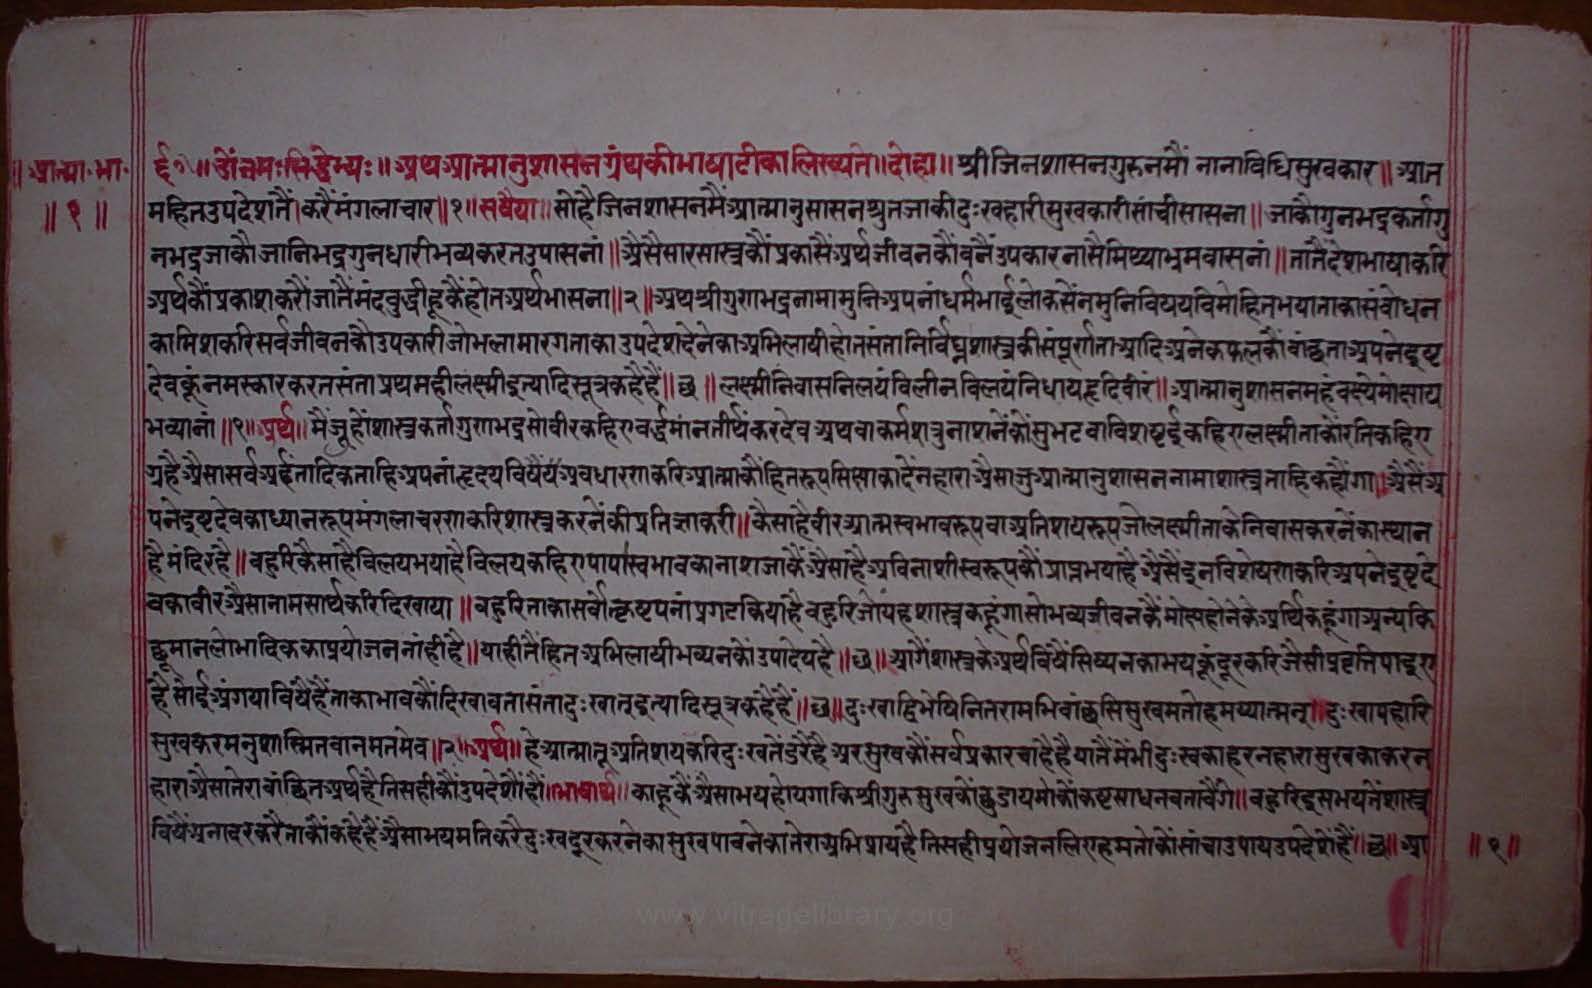 ॥ आत्मा॰ भा॰
॥ १ ॥
ई॰ ॥ ॐ नमः सिद्धेभ्यः ॥ अथ आत्मानुशासन ग्रंथकी भाषाटीका लिख्यते ॥ दोहा ॥ श्रीजिनशासनगुरुनमौं नानाविधिसुखकार ॥ आत
महितउपदेशतैं । करौंमंगलाचार ॥ १ ॥ सवैया ॥ सोहैजिनशासनमैंआत्मानुसासनश्रुतजाकीदुःखहारीसुखकारीसांचीसासना ॥ जाकौगुनभद्रकर्तागु
नभद्रजाकौजानिभद्रगुनधारीभव्यकरतउपासनां ॥ ऐसैसारसास्त्रकौंप्रकासैंअर्थजीवनकौंवनैंउपकारनासैमिथ्याभ्रमवासनां ॥ तातैंदेशभाषाकरि
अर्थकौंप्रकाशकरौंजातैंमंदबुद्धीहूकैंहोतअर्थभासना ॥ २ ॥ अथश्रीगुणभद्रनामामुनिअपनांधर्मभाईलोकसेंनमुनिविषयविमोहितभयाताकासंबोधन
कामिशकरिसर्वजीवनकौउपकारीजोभलामारगताकाउपदेशदेनेकाअभिलाषीहोतसंतानिर्विघ्नशास्त्रकीसंपूर्णताआदिअनेकफलकौंवांछताअपनेइष्ट
देवकूंनमस्कारकरतसंताप्रथमहीलक्ष्मीइत्यादिसूत्रकहैहैं ॥ छ ॥ लक्ष्मीनिवासनिलयंविलीनविलयंनिधायहृदिवीरं ॥ आत्मानुशासनमहंवक्ष्येमोक्षाय
भव्यानां ॥ १ ॥ अर्थ ॥ मैंजूहोंशास्त्रकर्तागुणभद्रसोवीरकहिएवर्द्धमांनतीर्थंकरदेवअथवाकर्मशत्रुनाशनेंकोंसुभटवाविशष्टईकहिएलक्ष्मीताकोंरातिकहिए
ग्रहैऐसासर्वअर्हंतादिकताहिअपनांहृदयविषैंअवधारणकरिआत्माकौंहितरूपसिक्षाकादेंनहाराऐसाजुआत्मानुशासननामाशास्त्रताहिकहौंगा ॥ ऐसैंअ
पनेइष्टदेवकाध्यानरूपमंगलाचरणकरिशास्त्रकरनेंकीप्रतिज्ञाकरी ॥ कैसाहैवीरआत्मस्वभावरूपवाअतिशयरूपजोलक्ष्मीताकेनिवासकरनेंकास्थान
हैमंदिरहै ॥ बहुरिकैसाहैविलयभयाहैविलयकहिएपापस्वभावकानाशजाकैंऐसाहैअविनाशीस्वरूपकौंप्राप्तभयाहैऐसैंइनविशेषणकरिअपनेइष्टदे
वकावीरऐसानामसार्थकरिदिखाया ॥ बहुरिताकासर्वोत्कृष्टपनांप्रगटकियाहैबहुरिजोयहशास्त्रकहूंगासोभव्यजीवनकैंमोक्षहोनेकेअर्थिकहूंगाअन्यकि
छूमानलोभादिककाप्रयोजननांहीहै ॥ याहीतैंहितअभिलाषीभव्यनकोंउपादेयहै ॥ छ ॥ आगैंशास्त्रकेअर्थविषैंसिष्यनकाभयकूंदूरकरिजैसीप्रवृत्तिपाइए
हैसोईअंगयाविषैहैंताकाभावकौंदिखावतासंतादुःखात्इत्यादिसूत्रकहैहैं ॥ छ ॥ दुःखाद्विभेषिनितरामभिवांछसिसुखमतोहमप्यात्मन् ॥ दुःखापहारि
सुखकरमनुशास्मितवानमतमेव ॥ २ ॥ अर्थ ॥ हेआत्मातूअतिशयकरिदुःखतेंडरैहैअरसुखकौंसर्वप्रकारचाहैहैयातैंमेंभीदुःखकाहरनहारासुखकाकरन
हाराऐसातेरावांछितअर्थहैतिसहीकौंउपदेशौंहौं ॥ भावार्थ ॥ काहूकैंऐसाभयहोयगाकिश्रीगुरुसुखकोंछुडायमोकोंकष्टसाधनबतावैंगे ॥ बहुरिइसभयतेंशास्त्र
विषैंअनादरकरैताकौंकहैहैंऐसाभयमतिकरैदुःखदूरकरनेकासुखपावनेकातेराअभिप्रायहैतिसहीप्रयोजनलिएहमतोकोंसांचाउपायउपदेशेहैं ॥ छ ॥ आ
॥ १ ॥
www.vitragelibrary.org